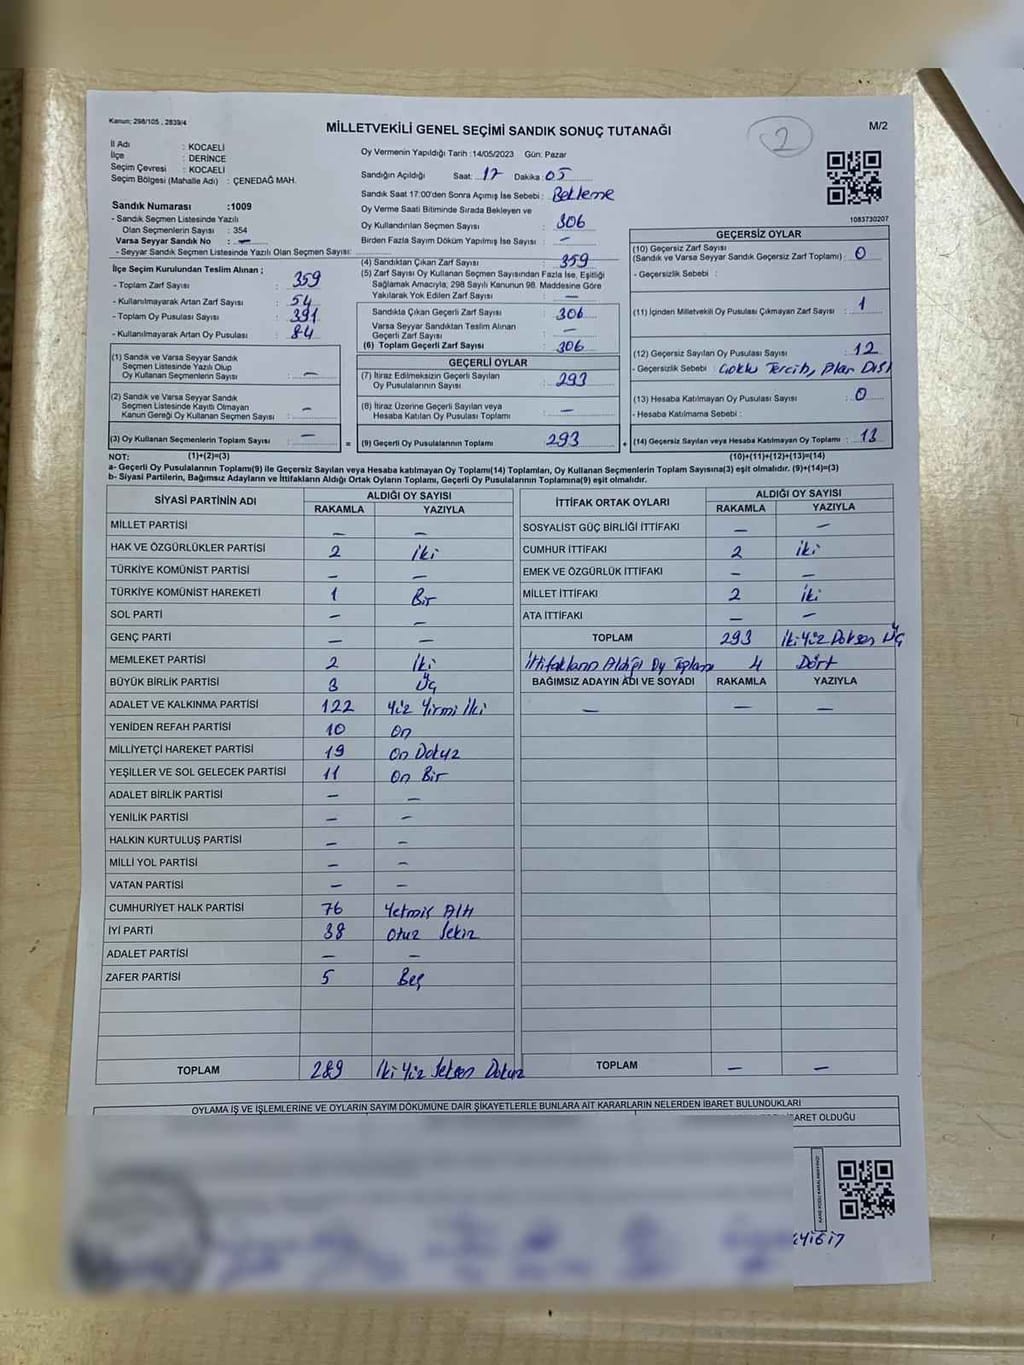 Kanun; 298/105 , 2839/4
MİLLETVEKİLİ GENEL SEÇİMİ SANDIK SONUÇ TUTANAĞI
2
M/2
İl Adı : KOCAELİ
İlçe : DERİNCE
Seçim Çevresi : KOCAELİ
Seçim Bölgesi (Mahalle Adı) : ÇENEDAĞ MAH.
Sandık Numarası :1009
- Sandık Seçmen Listesinde Yazılı
Olan Seçmenlerin Sayısı : 354
Varsa Seyyar Sandık No : —
- Seyyar Sandık Seçmen Listesinde Yazılı Olan Seçmen Sayısı:
İlçe Seçim Kurulundan Teslim Alınan ;
- Toplam Zarf Sayısı : 359
- Kullanılmayarak Artan Zarf Sayısı : 54
- Toplam Oy Pusulası Sayısı : 391
- Kullanılmayarak Artan Oy Pusulası : 84
(1) Sandık ve Varsa Seyyar Sandık
Seçmen Listesinde Yazılı Olup
Oy Kullanan Seçmenlerin Sayısı : —
(2) Sandık ve Varsa Seyyar Sandık
Seçmen Listesinde Kayıtlı Olmayan
Kanun Gereği Oy Kullanan Seçmen Sayısı : —
(3) Oy Kullanan Seçmenlerin Toplam Sayısı : —
Oy Vermenin Yapıldığı Tarih :14/05/2023 Gün: Pazar
Sandığın Açıldığı Saat: 17 Dakika: 05
Sandık Saat 17:00'den Sonra Açımış İse Sebebi : Bekleme
Oy Verme Saati Bitiminde Sırada Bekleyen ve
Oy Kullandırılan Seçmen Sayısı : 306
Birden Fazla Sayım Döküm Yapılmış İse Sayısı : —
(4) Sandıktan Çıkan Zarf Sayısı : 359
(5) Zarf Sayısı Oy Kullanan Seçmen Sayısından Fazla İse, Eşitliği
Sağlamak Amacıyla, 298 Sayılı Kanunun 98. Maddesine Göre
Yakılarak Yok Edilen Zarf Sayısı : —
Sandıkta Çıkan Geçerli Zarf Sayısı : 306
Varsa Seyyar Sandıktan Teslim Alınan
Geçerli Zarf Sayısı : —
(6) Toplam Geçerli Zarf Sayısı : 306
GEÇERLİ OYLAR
(7) İtiraz Edilmeksizin Geçerli Sayılan
Oy Pusulalarının Sayısı : 293
(8) İtiraz Üzerine Geçerli Sayılan veya
Hesaba Katılan Oy Pusulası Toplamı : —
= (9) Geçerli Oy Pusulalarının Toplamı : 293
1083730207
GEÇERSİZ OYLAR
(10) Geçersiz Zarf Sayısı
(Sandık ve Varsa Seyyar Sandık Geçersiz Zarf Toplamı) : 0
- Geçersizlik Sebebi :
(11) İçinden Milletvekili Oy Pusulası Çıkmayan Zarf Sayısı : 1
(12) Geçersiz Sayılan Oy Pusulası Sayısı : 12
- Geçersizlik Sebebi : Çoklu Tercih,
(13) Hesaba Katılmayan Oy Pusulası Sayısı : 0
- Hesaba Katılmama Sebebi :
+ (14) Geçersiz Sayılan veya Hesaba Katılmayan Oy Toplamı : 13
NOT: (1)+(2)=(3) (10)+(11)+(12)+(13)=(14)
a- Geçerli Oy Pusulalarının Toplamı(9) ile Geçersiz Sayılan veya Hesaba katılmayan Oy Toplamı(14) Toplamları, Oy Kullanan Seçmenlerin Toplam Sayısına(3) eşit olmalıdır. (9)+(14)=(3)
b- Siyasi Partilerin, Bağımsız Adayların ve İttifakların Aldığı Ortak Oyların Toplamı, Geçerli Oy Pusulalarının Toplamına(9) eşit olmalıdır.
SİYASİ PARTİNİN ADI ALDIĞI OY SAYISI
RAKAMLA YAZIYLA
MİLLET PARTİSİ — —
HAK VE ÖZGÜRLÜKLER PARTİSİ 2 İki
TÜRKİYE KOMÜNİST PARTİSİ — —
TÜRKİYE KOMÜNİST HAREKETİ 1 Bir
SOL PARTİ — —
GENÇ PARTİ — —
MEMLEKET PARTİSİ 2 İki
BÜYÜK BİRLİK PARTİSİ 3 Üç
ADALET VE KALKINMA PARTİSİ 122 Yüz Yirmi İki
YENİDEN REFAH PARTİSİ 10 On
MİLLİYETÇİ HAREKET PARTİSİ 19 On Dokuz
YEŞİLLER VE SOL GELECEK PARTİSİ 11 On Bir
ADALET BİRLİK PARTİSİ — —
YENİLİK PARTİSİ — —
HALKIN KURTULUŞ PARTİSİ — —
MİLLİ YOL PARTİSİ — —
VATAN PARTİSİ — —
CUMHURİYET HALK PARTİSİ 76 Yetmiş Altı
İYİ PARTİ 38 Otuz Sekiz
ADALET PARTİSİ — —
ZAFER PARTİSİ 5 Beş
TOPLAM 289 İki Yüz Seksen Dokuz
İTTİFAK ORTAK OYLARI ALDIĞI OY SAYISI
RAKAMLA YAZIYLA
SOSYALİST GÜÇ BİRLİĞİ İTTİFAKI — —
CUMHUR İTTİFAKI 2 İki
EMEK VE ÖZGÜRLÜK İTTİFAKI — —
MİLLET İTTİFAKI 2 İki
ATA İTTİFAKI — —
TOPLAM 293 İki Yüz Doksan Üç
İttifakların Aldığı Oy Toplamı 4 Dört
BAĞIMSIZ ADAYIN ADI VE SOYADI RAKAMLA YAZIYLA
— — —
TOPLAM — —
OYLAMA İŞ VE İŞLEMLERİNE VE OYLARIN SAYIM DÖKÜMÜNE DAİR ŞİKAYETLERLE BUNLARA AİT KARARLARIN NELERDEN İBARET BULUNDUKLARI
BARET OLDUĞU